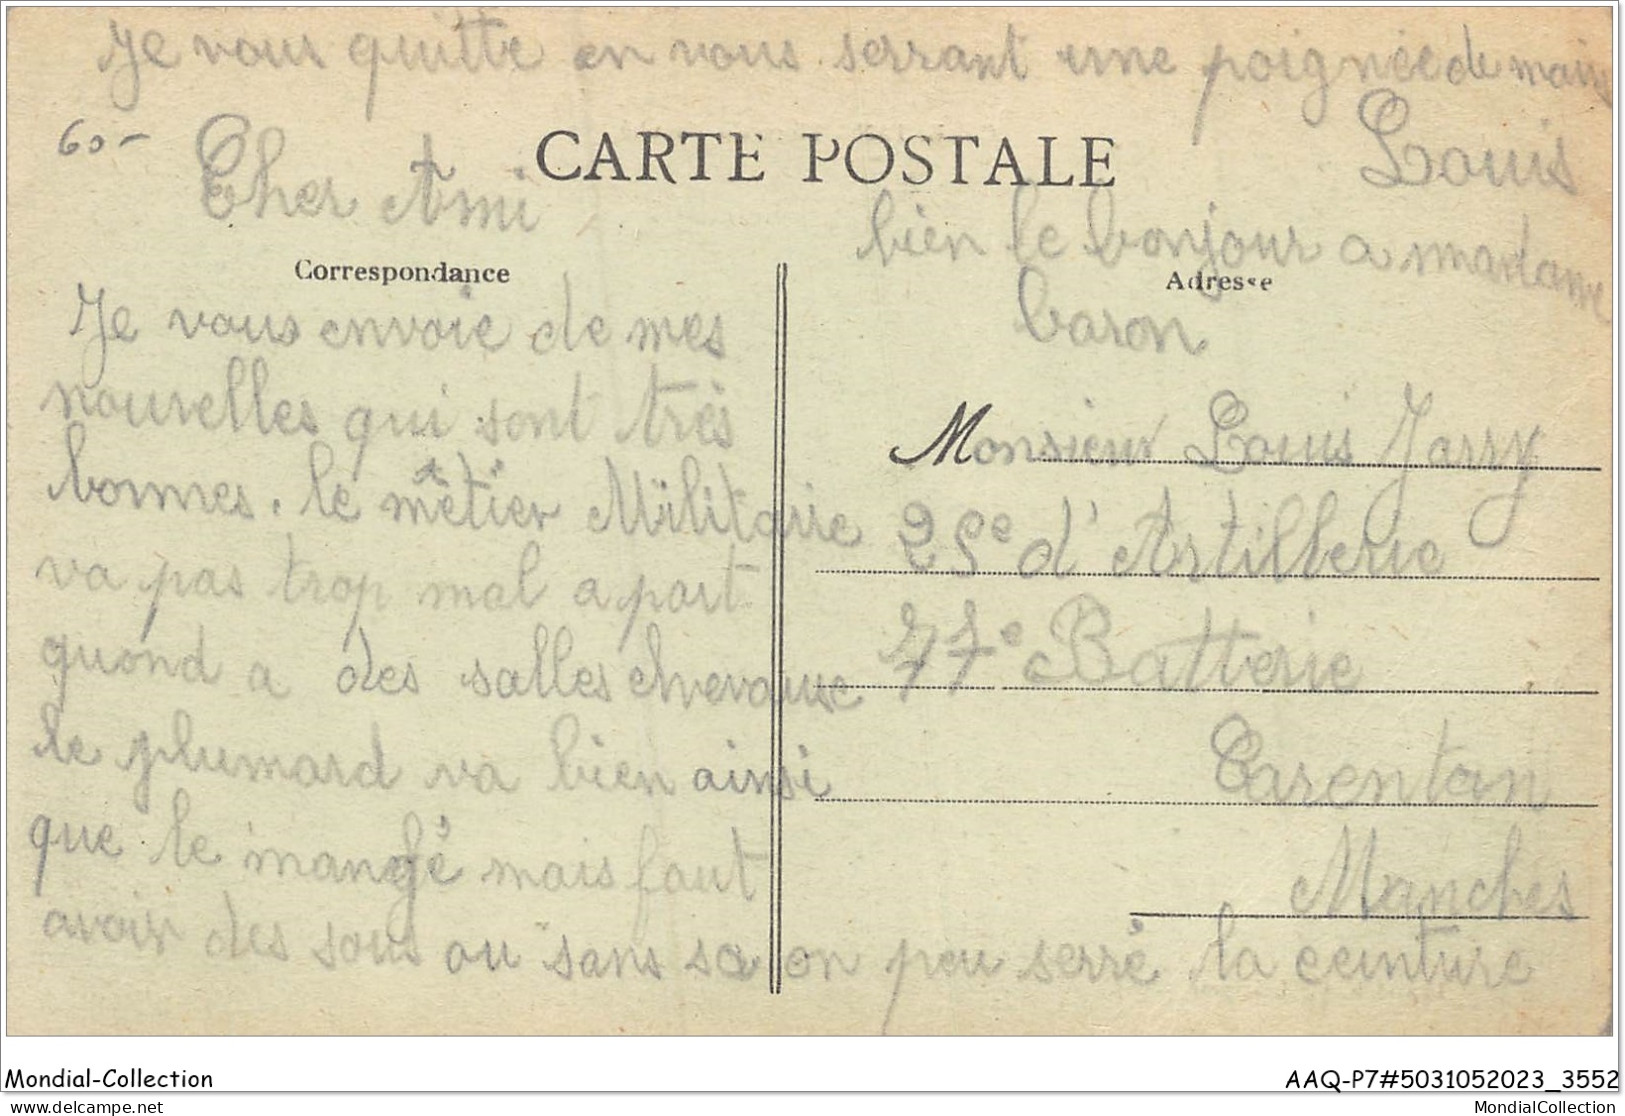 Je vous quitte en vous serrant une poignée de main
Louis
bien le bonjour a madame
baron.
60-
CARTE POSTALE
Cher Ami
Correspondance
Adresse
Je vous envoie de mes
nouvelles qui sont très
bonnes. le mêtier Militaire
va pas trop mal a part
quond a des salles chevause
le plumard va bien ainsi
que le mangé mais faut
avoir des sous ou sans sa on peu serré la ceinture
Monsieur Louis Jarry
25e d'Artillerie
77e Batterie
Carentan
Manches
Mondial-Collection
AAQ-P7#5031052023_3552
delcampe.net
MondialCollection